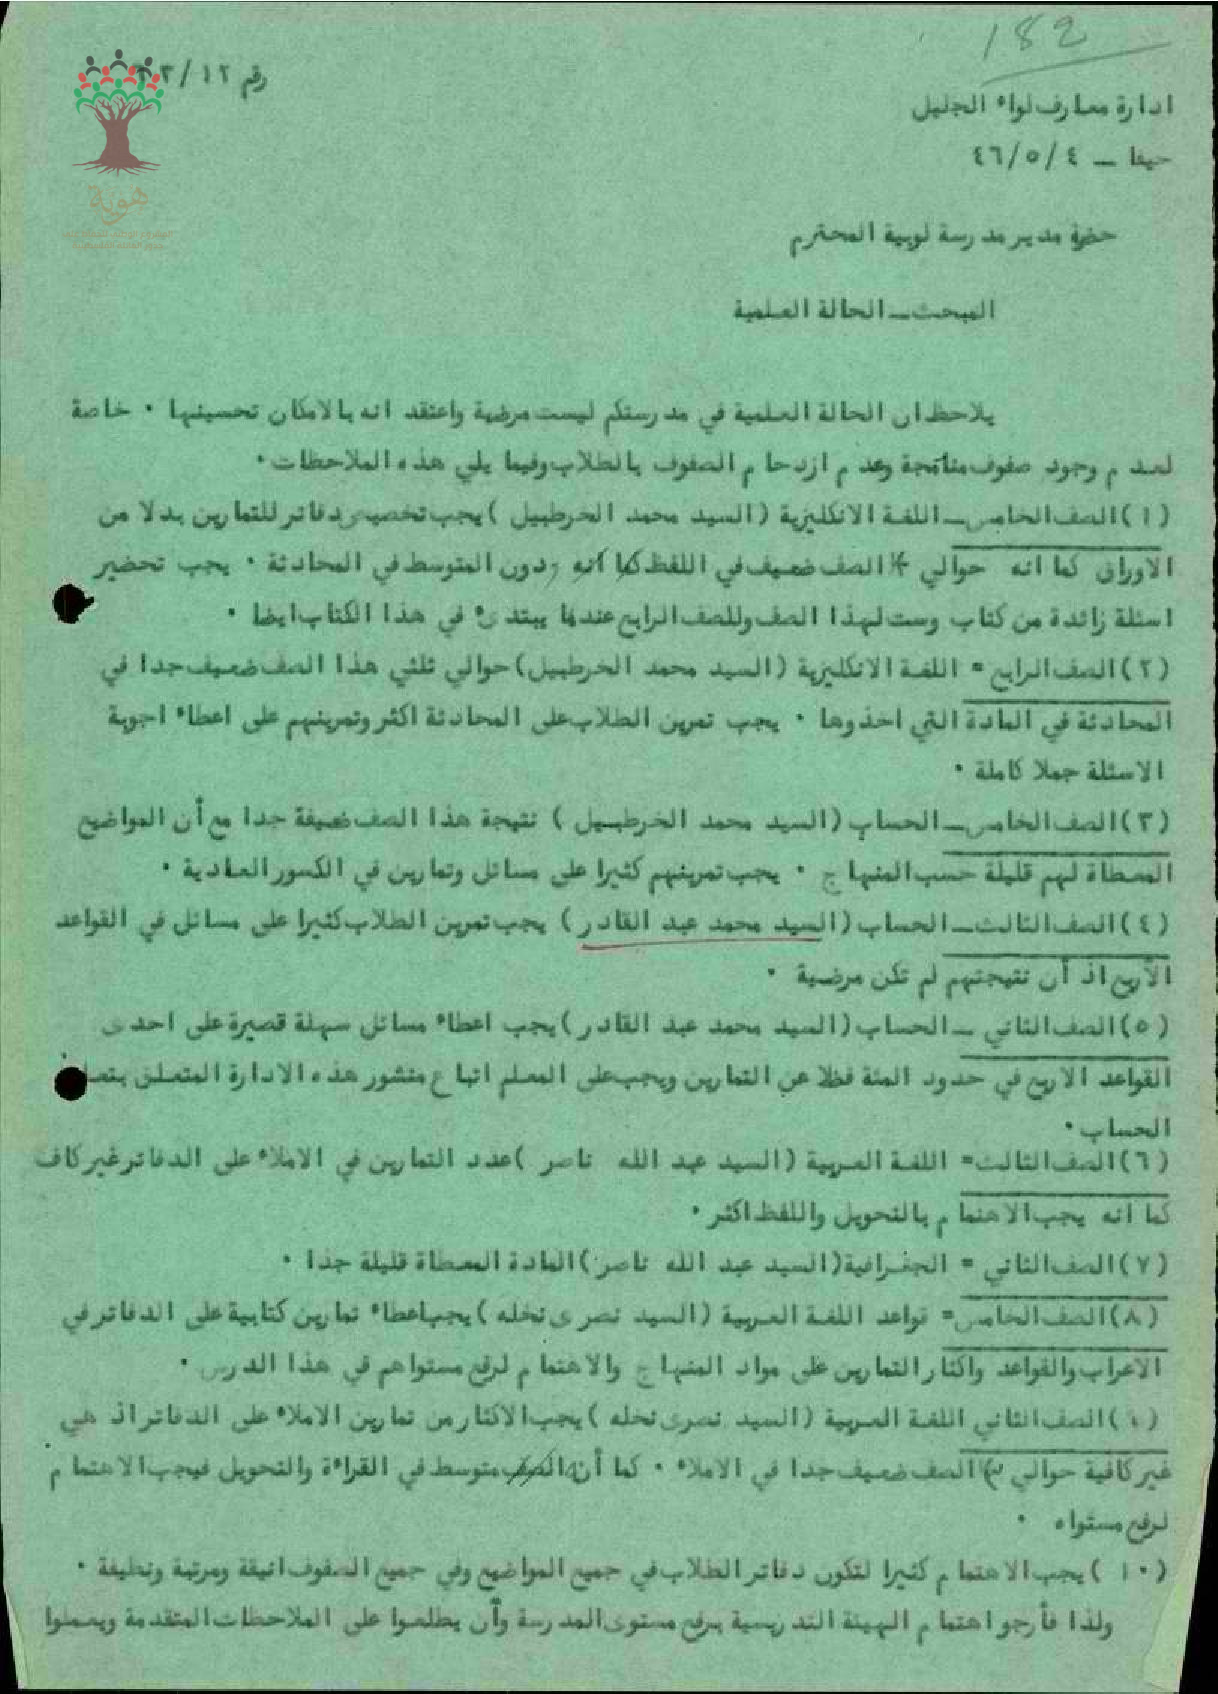 182
رقم ١٢/٢٣
ادارة معارف لواء الجليل
حيفا ــ ٤٦/٥/٤
حضرة مدير مدرسة لوبية المحترم
المبحث ــ الحالة العلمية
يلاحظ ان الحالة العلمية في مدرستكم ليست مرضية واعتقد انه بالامكان تحسينها ٠ خاصة
لعدم وجود صفوف مندمجة وعدم ازدحام الصفوف بالطلاب وفيما يلي هذه الملاحظات٠
(١) الصف الخامس ــ اللغة الانكليزية (السيد محمد الخرطبيل) يجب تخصيص دفاتر للتمارين بدلا من
الاوراق كما انه حوالي الصف ضعيف في اللفظ كما انه دون المتوسط في المحادثة ٠ يجب تحضير
اسئلة زائدة من كتاب وست لهذا الصف وللصف الرابع عندما يبتدىء في هذا الكتاب ايضا ٠
(٢) الصف الرابع = اللغة الانكليزية (السيد محمد الخرطبيل) حوالي ثلثي هذا الصف ضعيف جدا في
المحادثة في المادة التي اخذوها ٠ يجب تمرين الطلاب على المحادثة اكثر وتمرينهم على اعطاء اجوبة
الاسئلة جملا كاملة ٠
(٣) الصف الخامس ــ الحساب (السيد محمد الخرطبيل) نتيجة هذا الصف ضعيفة جدا مع أن المواضيع
المعطاة لهم قليلة حسب المنهاج ٠ يجب تمرينهم كثيرا على مسائل وتمارين في الكسور العادية ٠
(٤) الصف الثالث ــ الحساب (السيد محمد عبد القادر) يجب تمرين الطلاب كثيرا على مسائل في القواعد
الأربع اذ أن نتيجتهم لم تكن مرضية ٠
(٥) الصف الثاني ــ الحساب (السيد محمد عبد القادر) يجب اعطاء مسائل سهلة قصيرة على احدى
القواعد الاربع في حدود المئة فظلا عن التمارين ويجب على المعلم اتباع منشور هذه الادارة المتعلق بتعليم
الحساب٠
(٦) الصف الثالث = اللغة العربية (السيد عبد الله ناصر) عدد التمارين في الاملاء على الدفاتر غير كاف
كما انه يجب الاهتمام بالتحويل واللفظ اكثر ٠
(٧) الصف الثاني = الجغرافية (السيد عبد الله ناصر) المادة المعطاة قليلة جدا ٠
(٨) الصف الخامس = قواعد اللغة العربية (السيد نصرى نخله) يجب اعطاء تمارين كتابية على الدفاتر في
الاعراب والقواعد واكثار التمارين على مواد المنهاج والاهتمام لرفع مستواهم في هذا الدرس ٠
الصف الثاني اللغة العربية (السيد نصرى نخله) يجب الاكثار من تمارين الاملاء على الدفاتر اذ هي
غير كافية حوالي الصف ضعيف جدا في الاملاء ٠ كما أن الصف متوسط في القراءة والتحويل فيجب الاهتمام
لرفع مستواه ٠
(١٠) يجب الاهتمام كثيرا لتكون دفاتر الطلاب في جميع المواضيع وفي جميع الصفوف انيقة ومرتبة ونظيفة ٠
ولذا فأرجو اهتمام الهيئة التدريسية برفع مستوى المدرسة وأن يطلعوا على الملاحظات المتقدمة ويعملوا
هوية